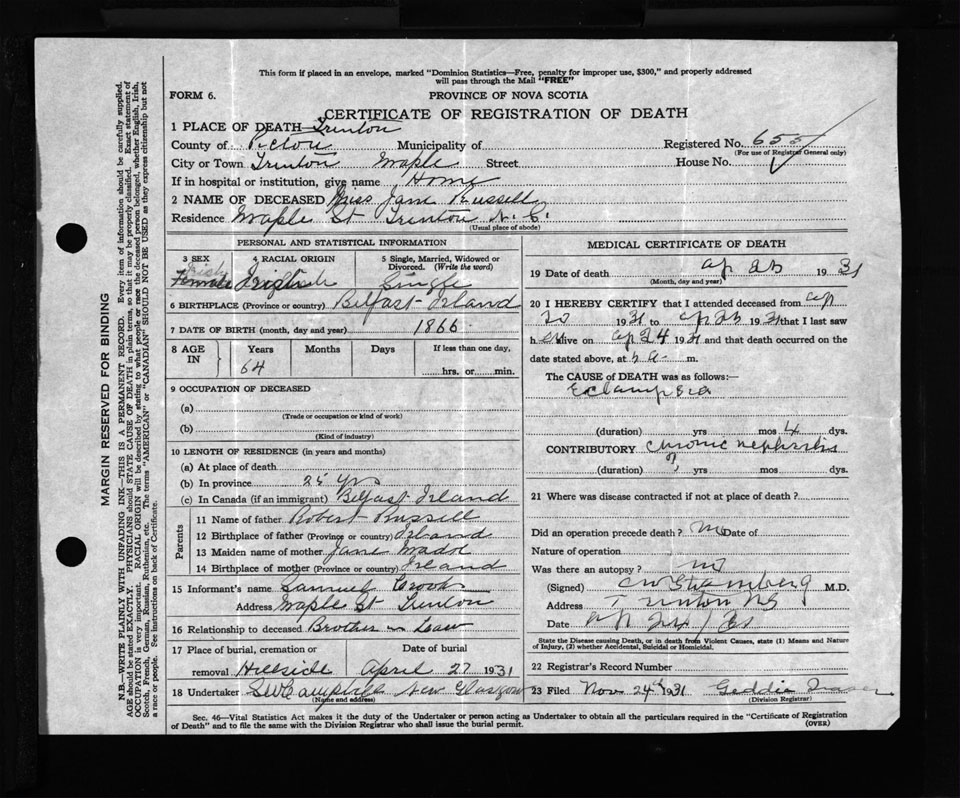 This form if placed in an envelope, marked "Dominion Statistics—Free, penalty for improper use, $300," and properly addressed
will pass through the Mail "FREE"
FORM 6.
PROVINCE OF NOVA SCOTIA
CERTIFICATE OF REGISTRATION OF DEATH
1 PLACE OF DEATH—Trenton
County of Pictou Municipality of Registered No. 655
(For use of Registrar General only)
City or Town Trenton Maple Street House No.
If in hospital or institution, give name Home
2 NAME OF DECEASED Miss Jane Russell
Residence Maple St Trenton N. S.
(Usual place of abode)
PERSONAL AND STATISTICAL INFORMATION
3 SEX 4 RACIAL ORIGIN 5 Single, Married, Widowed or
Divorced. (Write the word)
Female Irish Single
6 BIRTHPLACE (Province or country) Belfast Irland
7 DATE OF BIRTH (month, day and year) 1866
8 AGE IN Years Months Days If less than one day,
64 hrs. or min.
9 OCCUPATION OF DECEASED
(a)
(Trade or occupation or kind of work)
(b)
(Kind of industry)
10 LENGTH OF RESIDENCE (in years and months)
(a) At place of death
(b) In province 25 yrs
(c) In Canada (if an immigrant) Belfast Irland
Parents
11 Name of father Robert Russell
12 Birthplace of father (Province or country) Irland
13 Maiden name of mother Jane
14 Birthplace of mother (Province or country) Ireland
15 Informant's name Samuel Crooks
Address Maple St Trenton
16 Relationship to deceased Brother in Law
17 Place of burial, cremation or Date of burial
removal Hillside April 27 1931
18 Undertaker New Glasgow
(Name and address)
MEDICAL CERTIFICATE OF DEATH
19 Date of death ap 25 1931
(Month, day and year)
20 I HEREBY CERTIFY that I attended deceased from ap
20 1931 to ap 25 1931 that I last saw
h er alive on ap 24 1931 and that death occurred on the
date stated above, at 5 a m.
The CAUSE of DEATH was as follows:—
Eclampsia
(duration) yrs mos 4 dys.
CONTRIBUTORY chronic nephritis
(duration) ? yrs mos dys.
21 Where was disease contracted if not at place of death?
Did an operation precede death? no Date of
Nature of operation
Was there an autopsy? no
(Signed) M.D.
Address Trenton NS
Date
State the Disease causing Death, or in death from Violent Causes, state (1) Means and Nature
of Injury, (2) whether Accidental, Suicidal or Homicidal.
22 Registrar's Record Number
23 Filed Nov 24th 1931 Geddie
(Division Registrar)
Sec. 46—Vital Statistics Act makes it the duty of the Undertaker or person acting as Undertaker to obtain all the particulars required in the "Certificate of Registration
of Death" and to file the same with the Division Registrar who shall issue the burial permit.
(OVER)
MARGIN RESERVED FOR BINDING
N.B.—WRITE PLAINLY WITH UNFADING INK—THIS IS A PERMANENT RECORD. Every item of information should be carefully supplied.
AGE should be stated EXACTLY. PHYSICIANS should STATE CAUSE OF DEATH in plain terms, so that it may be properly classified. Exact statement of
OCCUPATION is very important. RACIAL ORIGIN will be described by stating to what people or race the deceased person belonged, whether English, Irish,
Scotch, French, German, Russian, Ruthenian, etc. The terms "AMERICAN" or "CANADIAN" SHOULD NOT BE USED as they express citizenship but not
a race or people. See instructions on back of Certificate.